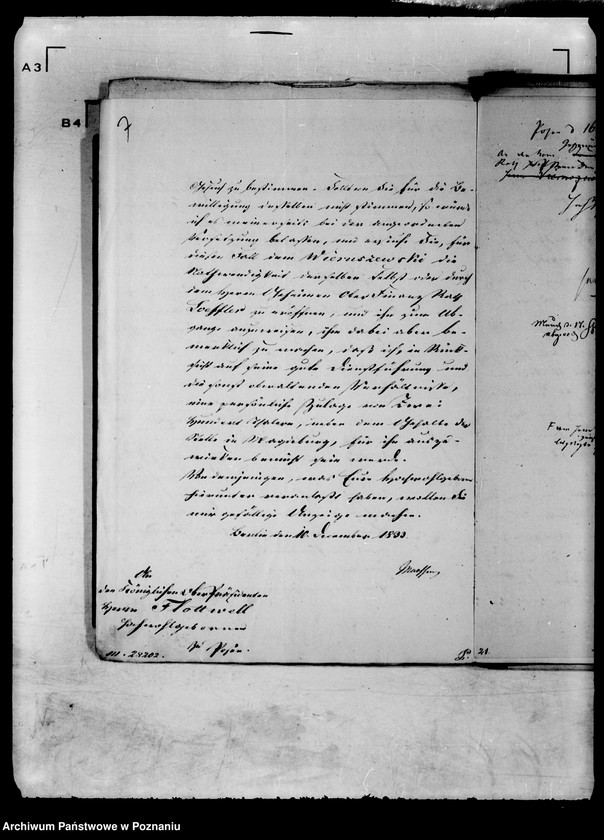 A3
B4
7
Gesuch zu bestimmen. Sollten Sie für die Be-
willigung desselben nicht stimmen, so würde
ich es meinerseits bei der angeordneten
Versetzung belassen, und ersuche Sie, für
diesen Fall dem Wieruszewski die
Nothwendigkeit derselben selbst oder durch
dem Herrn Geheimen Ober Finanz Rath
Loeffler zu eröffnen, und ihn zum Ab-
gange anzuweisen, ihm dabei aber be-
merklich zu machen, daß ich, in Rück-
sicht auf seine gute Dienstführung und
die sonst obwaltenden Verhältnisse,
eine persönliche Zulage von Zwei
Hundert Thalern, neben dem Gehalte der
Stelle in Magdeburg, für ihn auszu-
wirken bemüht sein werde.
Von demjenigen, was Eure Hochwohlgeboren
hierunter veranlaßt haben, wollen Sie
mir gefällige Anzeige machen.
Berlin den 10. December 1833.
Maassen
An
den Königlichen Ober Präsidenten
Herrn Flottwell
Hochwohlgeboren
zu Posen.
III. 28202.
21
Posen d 16
Archiwum Państwowe w Poznaniu